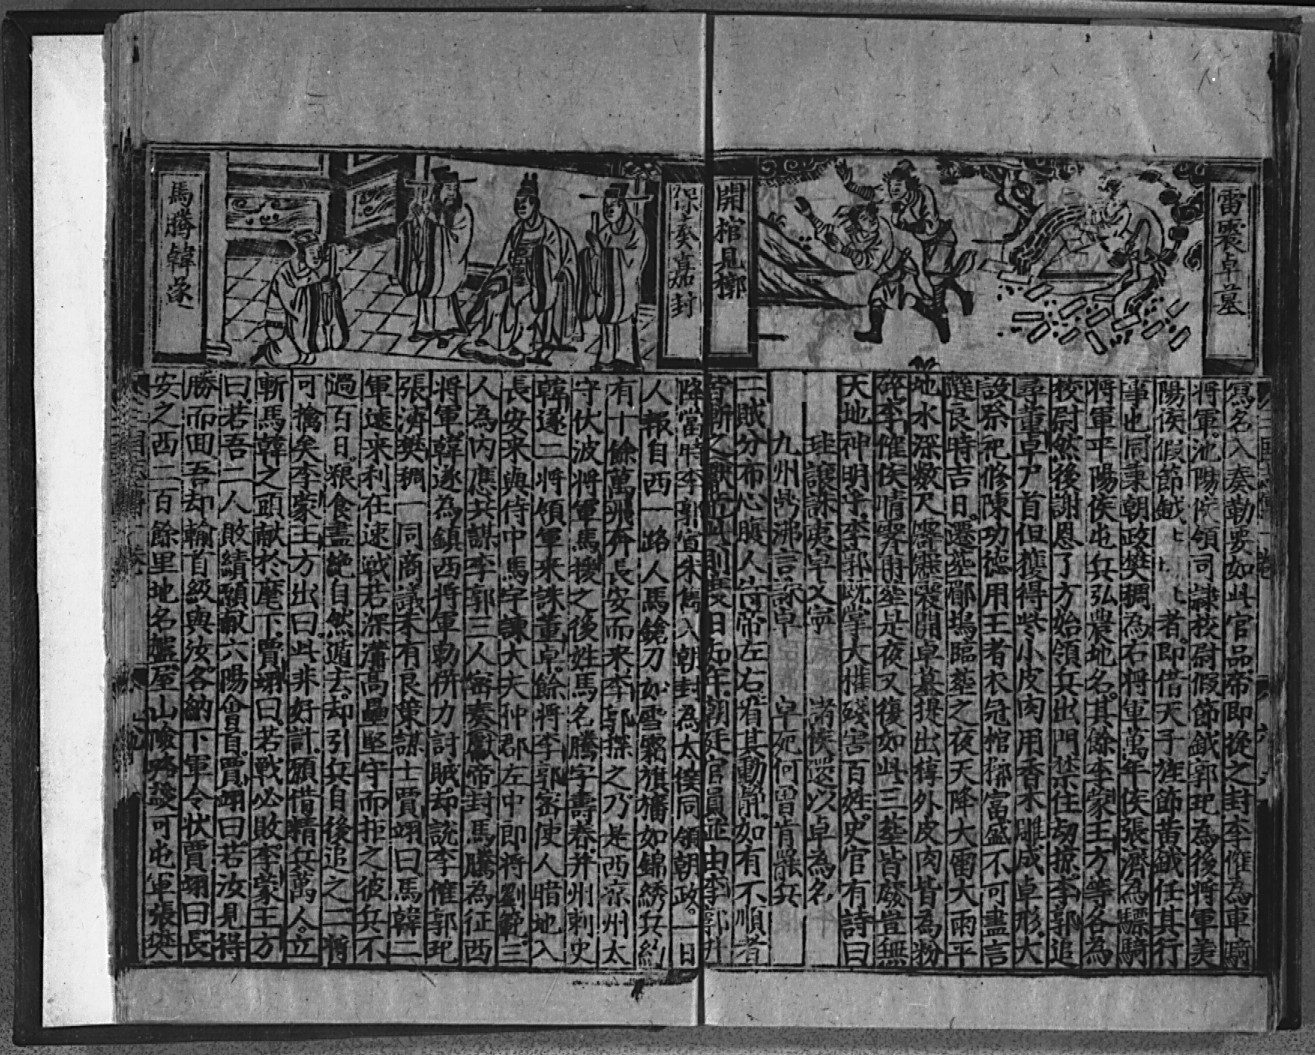 雷震卓墓
開棺見槨
寫名入奏勒要如此官品帝即從之封李傕為車騎
將軍池陽侯領司隸校尉假節鉞郭汜為後將軍美
陽侯假節鉞者即借天子旌節黃鉞任其行
事也同秉朝政樊稠為右將軍萬年侯張濟為驃騎
將軍平陽侯屯兵弘農地名其餘李蒙王方等各為
校尉然後謝恩了方始領兵出門禁住劫擄李郭追
尋董卓尸首但獲得些小皮肉用香木雕成卓形大
設祭祀修陳功德用王者衣冠棺槨富盛不可盡言
隨良時吉日遷塟郿塢臨塟之夜天降大雷大雨平
地水深數尺霹靂震開卓墓提出槨外皮肉皆為粉
碎李傕侯晴霽用塟是夜又復如此三塟皆廢豈無
天地神明乎李郭既掌大權殘害百姓史官有詩曰
珪讓誅夷卓又寧 諸侯還以卓為名
九州鼎沸言誅卓 卓死何曾肯罷兵
二賊分布心腹人侍帝左右看其動靜如有不順者
皆斬之獻帝此則度日如年朝廷官員並由李郭升
保奏嘉封
馬騰韓遂
降當時李郭宣朱儁入朝封為太僕同領朝政一日
人報自西一路人馬鎗刀如雪霜旗旛如錦綉兵約
有十餘萬飛奔長安而來李郭探之乃是西凉州太
守伏波將軍馬援之後姓馬名騰字壽春并州刺史
韓遂二將領軍來誅董卓餘將李郭密使人暗地入
長安來與侍中馬宇諫大夫种邵左中郎將劉範三
人為內應共謀李郭三人密奏獻帝封馬騰為征西
將軍韓遂為鎮西將軍勑併力討賊却說李傕郭汜
張濟樊稠一同商議未有良策謀士賈翊曰馬韓二
軍遠來利在速戰若深溝高壘堅守而拒之彼兵不
過百日粮食盡絶自然遁去却引兵自後追之二將
可擒矣李蒙王方出曰此非好計願借精兵萬人立
斬馬韓之頭献於麾下賈翊曰若戰必敗李蒙王方
曰若吾二人敗績願献六陽會首賈翊曰若汝見得
勝而回吾却輸首級與汝各納下軍令狀賈翊曰長
安之西二百餘里地名盩厔山險路峻可屯軍張樊